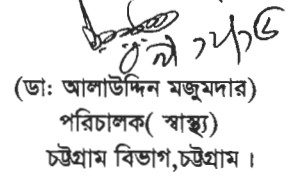 (ডাঃ আলাউদ্দিন মজুমদার)
পরিচালক( স্বাস্থ্য)
চট্টগ্রাম বিভাগ,চট্টগ্রাম ।